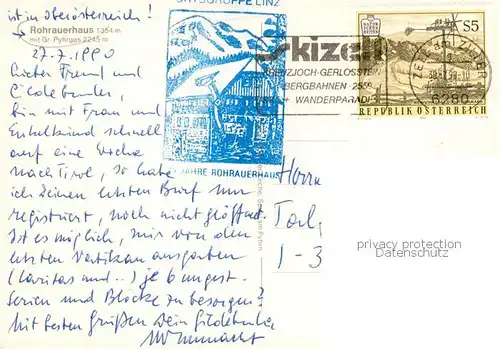 ist in Oberösterreich!
Rohrauerhaus 1354 m
mit Gr. Pyhrgas 2245 m
27.7.1990
Lieber Freund und
Gildebruder,
bin mit Frau und
Enkelkind schnell
auf eine Woche
nach Tirol, so habe
ich Deinen letzten Brief nur
registriert, noch nicht geöffnet.
Ist es möglich, mir von den
letzten Vatikan ausgaben
(Caritas und ..) je 6 ungest.
Serien und Blöcke zu besorgen?
Mit besten Grüßen Dein Gildebruder
ORTSGRUPPE LINZ
JAHRE ROHRAUERHAUS
Skizell
SPITZJOCH-GERLOSSTEIN
BERGBAHNEN
WANDERPARADI
ZELL am ZILLER
6280
S5
REPUBLIK ÖSTERREICH
Herrn
1-3
privacy protection
Datenschutz